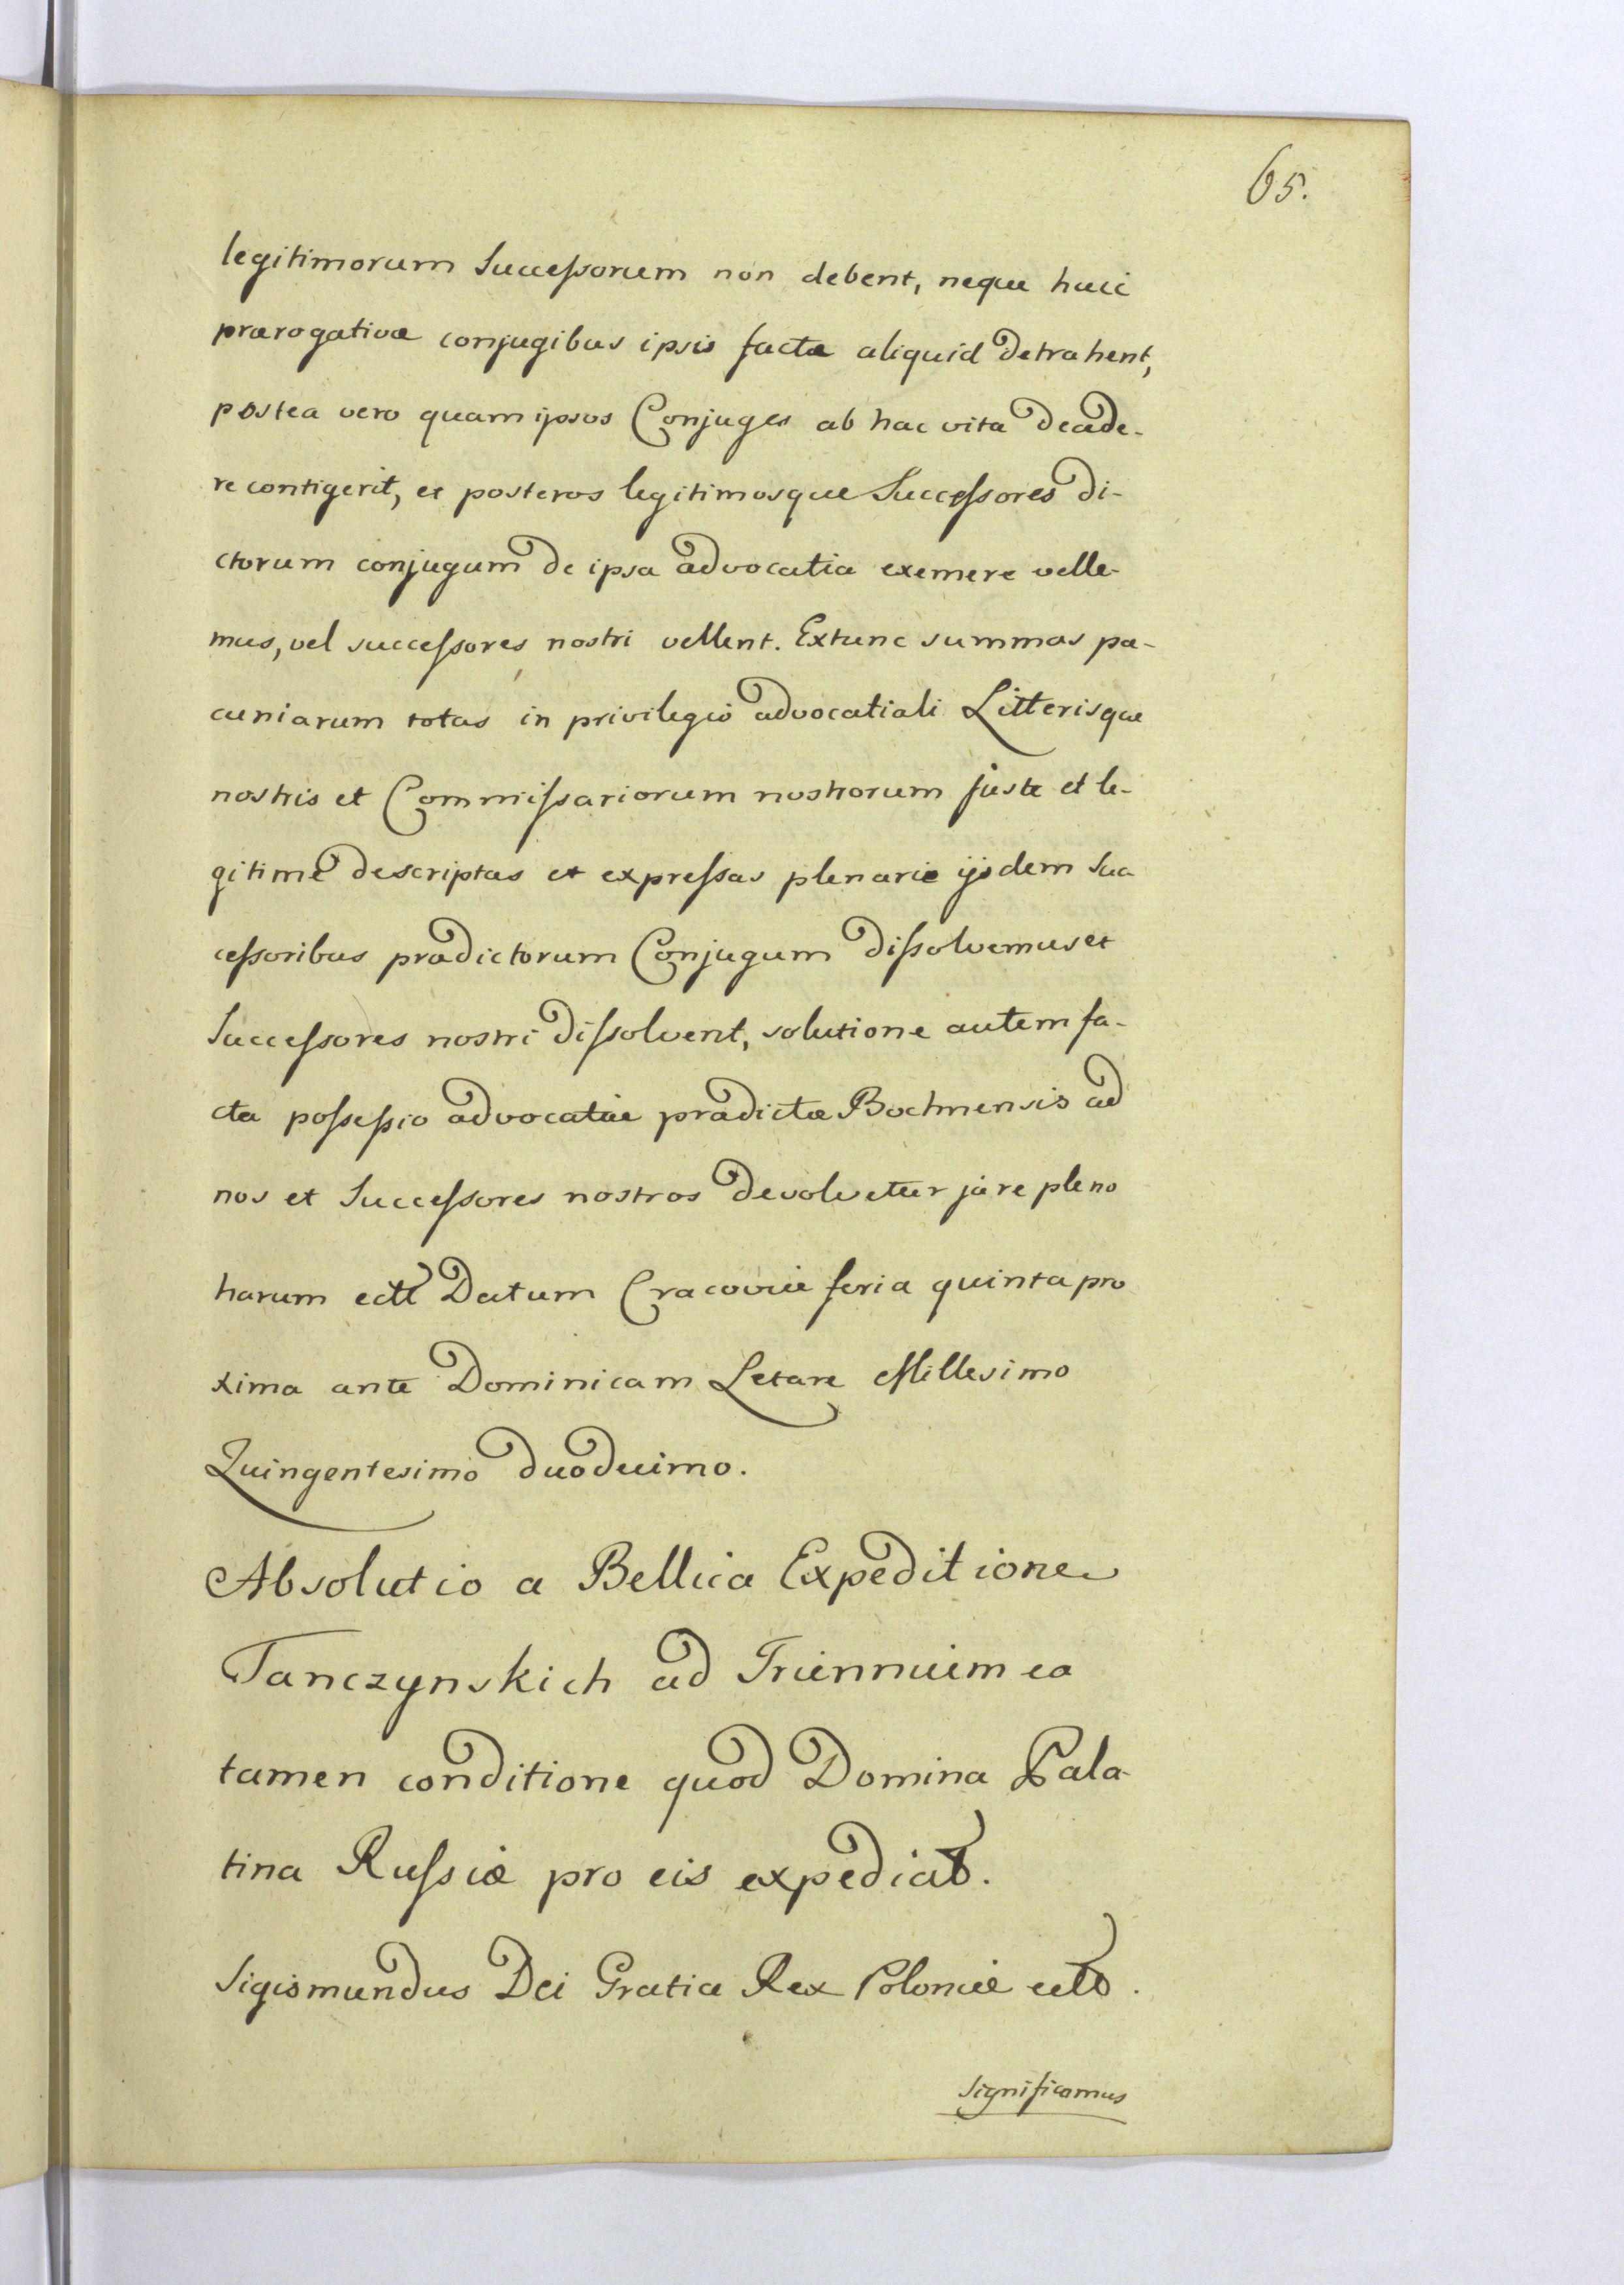 65.
legitimorum Successorum non debent, neque huic
prærogativæ conjugibus ipsis factæ aliquid detrahent,
postea vero quam ipsos Conjuges ab hac vita decede-
re contigerit, et posteros legitimosque Successores di-
ctorum conjugum de ipsa advocatia exemere velle-
mus, vel successores nostri vellent. Extunc summas pe-
cuniarum totas in privilegio advocatiali Litterisque
nostris et Commissariorum nostrorum juste et le-
gitime descriptas et expressas plenarie ijsdem Suc-
cessoribus prædictorum Conjugum dissolvemus et
Successores nostri dissolvent, solutione autem fa-
cta possessio advocatiæ prædictæ Bochnensis ad
nos et Successores nostros devolvetur jure pleno
harum ectt Datum Cracoviæ feria quinta pro
xima ante Dominicam Letare Millesimo
Quingentesimo duodecimo.
Absolutio a Bellica Expeditione
Tanczynskich ad Triennium ea
tamen conditione quod Domina Pala-
tina Russiæ pro eis expediat.
Sigismundus Dei Gratia Rex Poloniæ ectt.
significamus